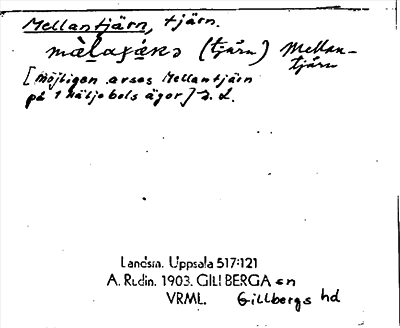 Mellantjärn, tjärn.
(tjärn) Mellan-
tjärn
[Möjligen avses Mellantjärn
på 1 Häljebols ägor] D. S.
Landsm. Uppsala 517:121
A. Rudin. 1903. GILLBERGA en
VRML. Gillbergs hd